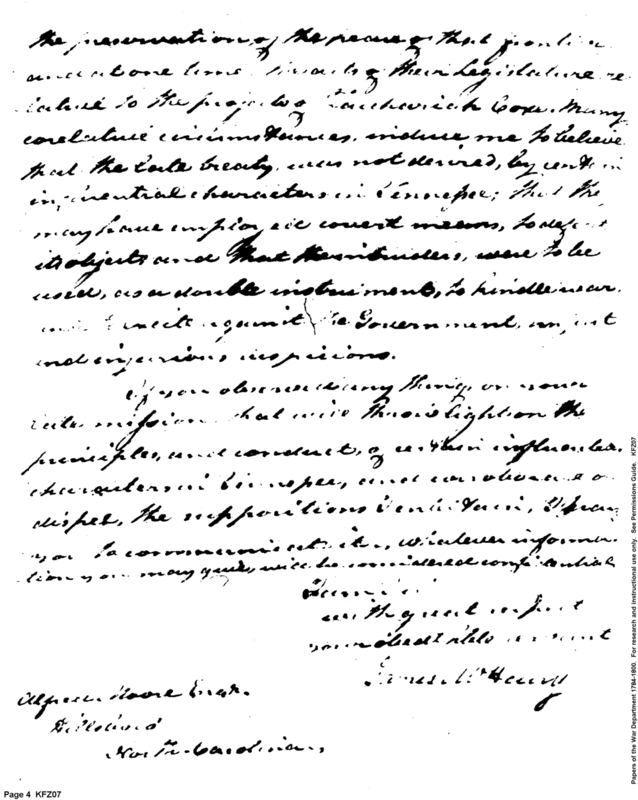 the preservation, of the peace of that frontier
and at one time threats of their Legislature re
lative to the project of Zachariah Coxe. Many
corelative circumstances, induce me to believe
that the late treaty, was not desired, by certain
influential characters in Tennessee; that they
may have employed covert means, to defeat
its objects and that the intruders, were to be
used, as a double instrument, to kindle war
and excite against the Government, unjust
and injurious suspicions.
If you observed any thing on your
late mission that will throw light on the
principles, and conduct, of certain influential
characters in Tennessee, and corroborate or
dispel, the suppositions I entertain, I pray
you to communicate it, whatever informa
tion you may give, will be considered confidential
I am Sir
with great respect
your obedt. hble servant
James McHenry
Alfred Moore Esqr.
Hillsboro'
North-Carolina
Page 4 KFZ07
Papers of the War Department 1784-1800. For research and instructional use only. See Permissions Guide. KFZ07